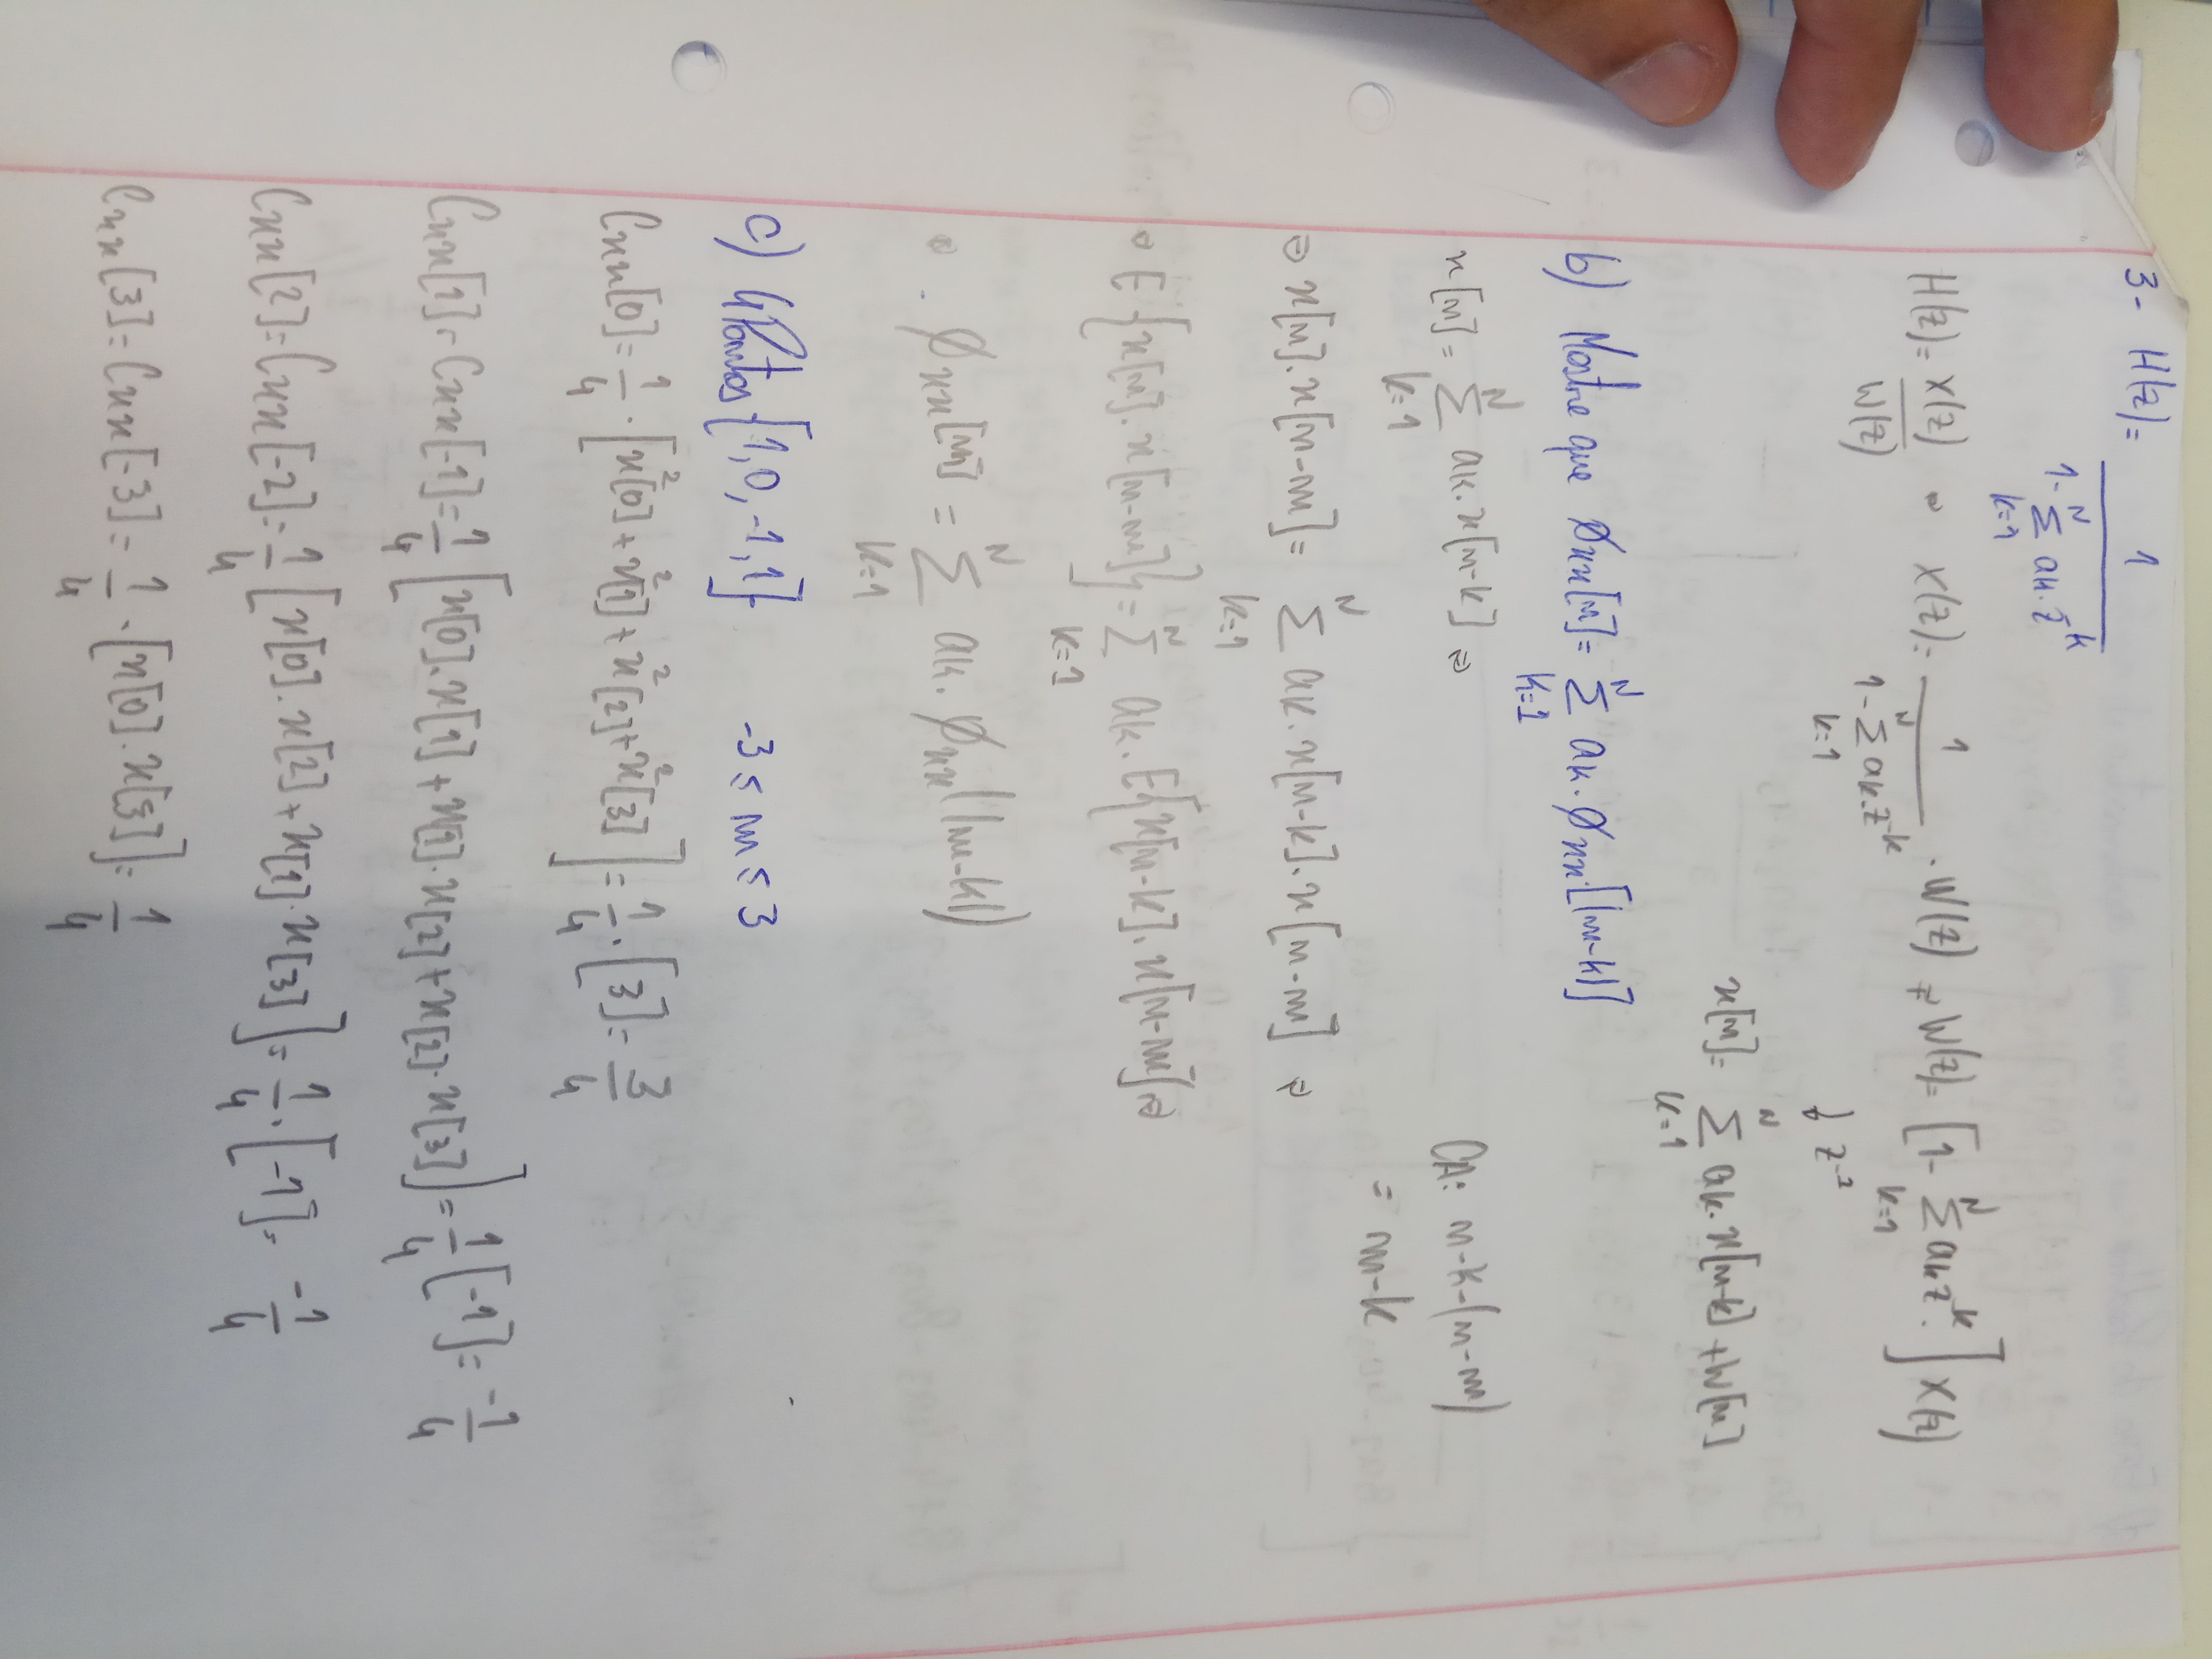 3- H(z)= 1 / (1- Σ_{k=1}^{N} ak. z^-k)
H(z)= X(z)/W(z) ⇒ X(z)= 1/(1- Σ_{k=1}^{N} ak. z^-k) . W(z) ⇒ W(z)= [1- Σ_{k=1}^{N} ak z^-k.] X(z)
↓ z^-1
x[n]= Σ_{k=1}^{N} ak. x[n-k] + W[n]
b) Mostre que Øxx[m]= Σ_{K=1}^{N} ak. Øxx.[|m-k|]
x[n]= Σ_{k=1}^{N} ak. x[n-k] ⇒
CA: n-k-(n-m)
= m-k
⇒ x[n]. x[n-m]= Σ_{k=1}^{N} ak. x[n-k]. x[n-m] ⇒
⇒ E{x[n]. x[n-m]}= Σ_{k=1}^{N} ak. E{x[n-k]. x[n-m]} ⇒
⇒ . Øxx[m] = Σ_{k=1}^{N} ak. Øxx(|m-k|)
c) 4 Pontos {1,0,-1,1} -3 ≤ m ≤ 3
Cxx[0]= 1/4 . [x²[0] + x²[1] + x²[2] + x²[3]] = 1/4 . [3] = 3/4
Cxx[1]= Cxx[-1]= 1/4 [x[0]. x[1] + x[1]. x[2] + x[2]. x[3]] = 1/4 [-1] = -1/4
Cxx[2]= Cxx[-2]= 1/4 [x[0]. x[2] + x[1]. x[3]] = 1/4 . [-1] = -1/4
Cxx[3]= Cxx[-3]= 1/4 . [x[0]. x[3]] = 1/4